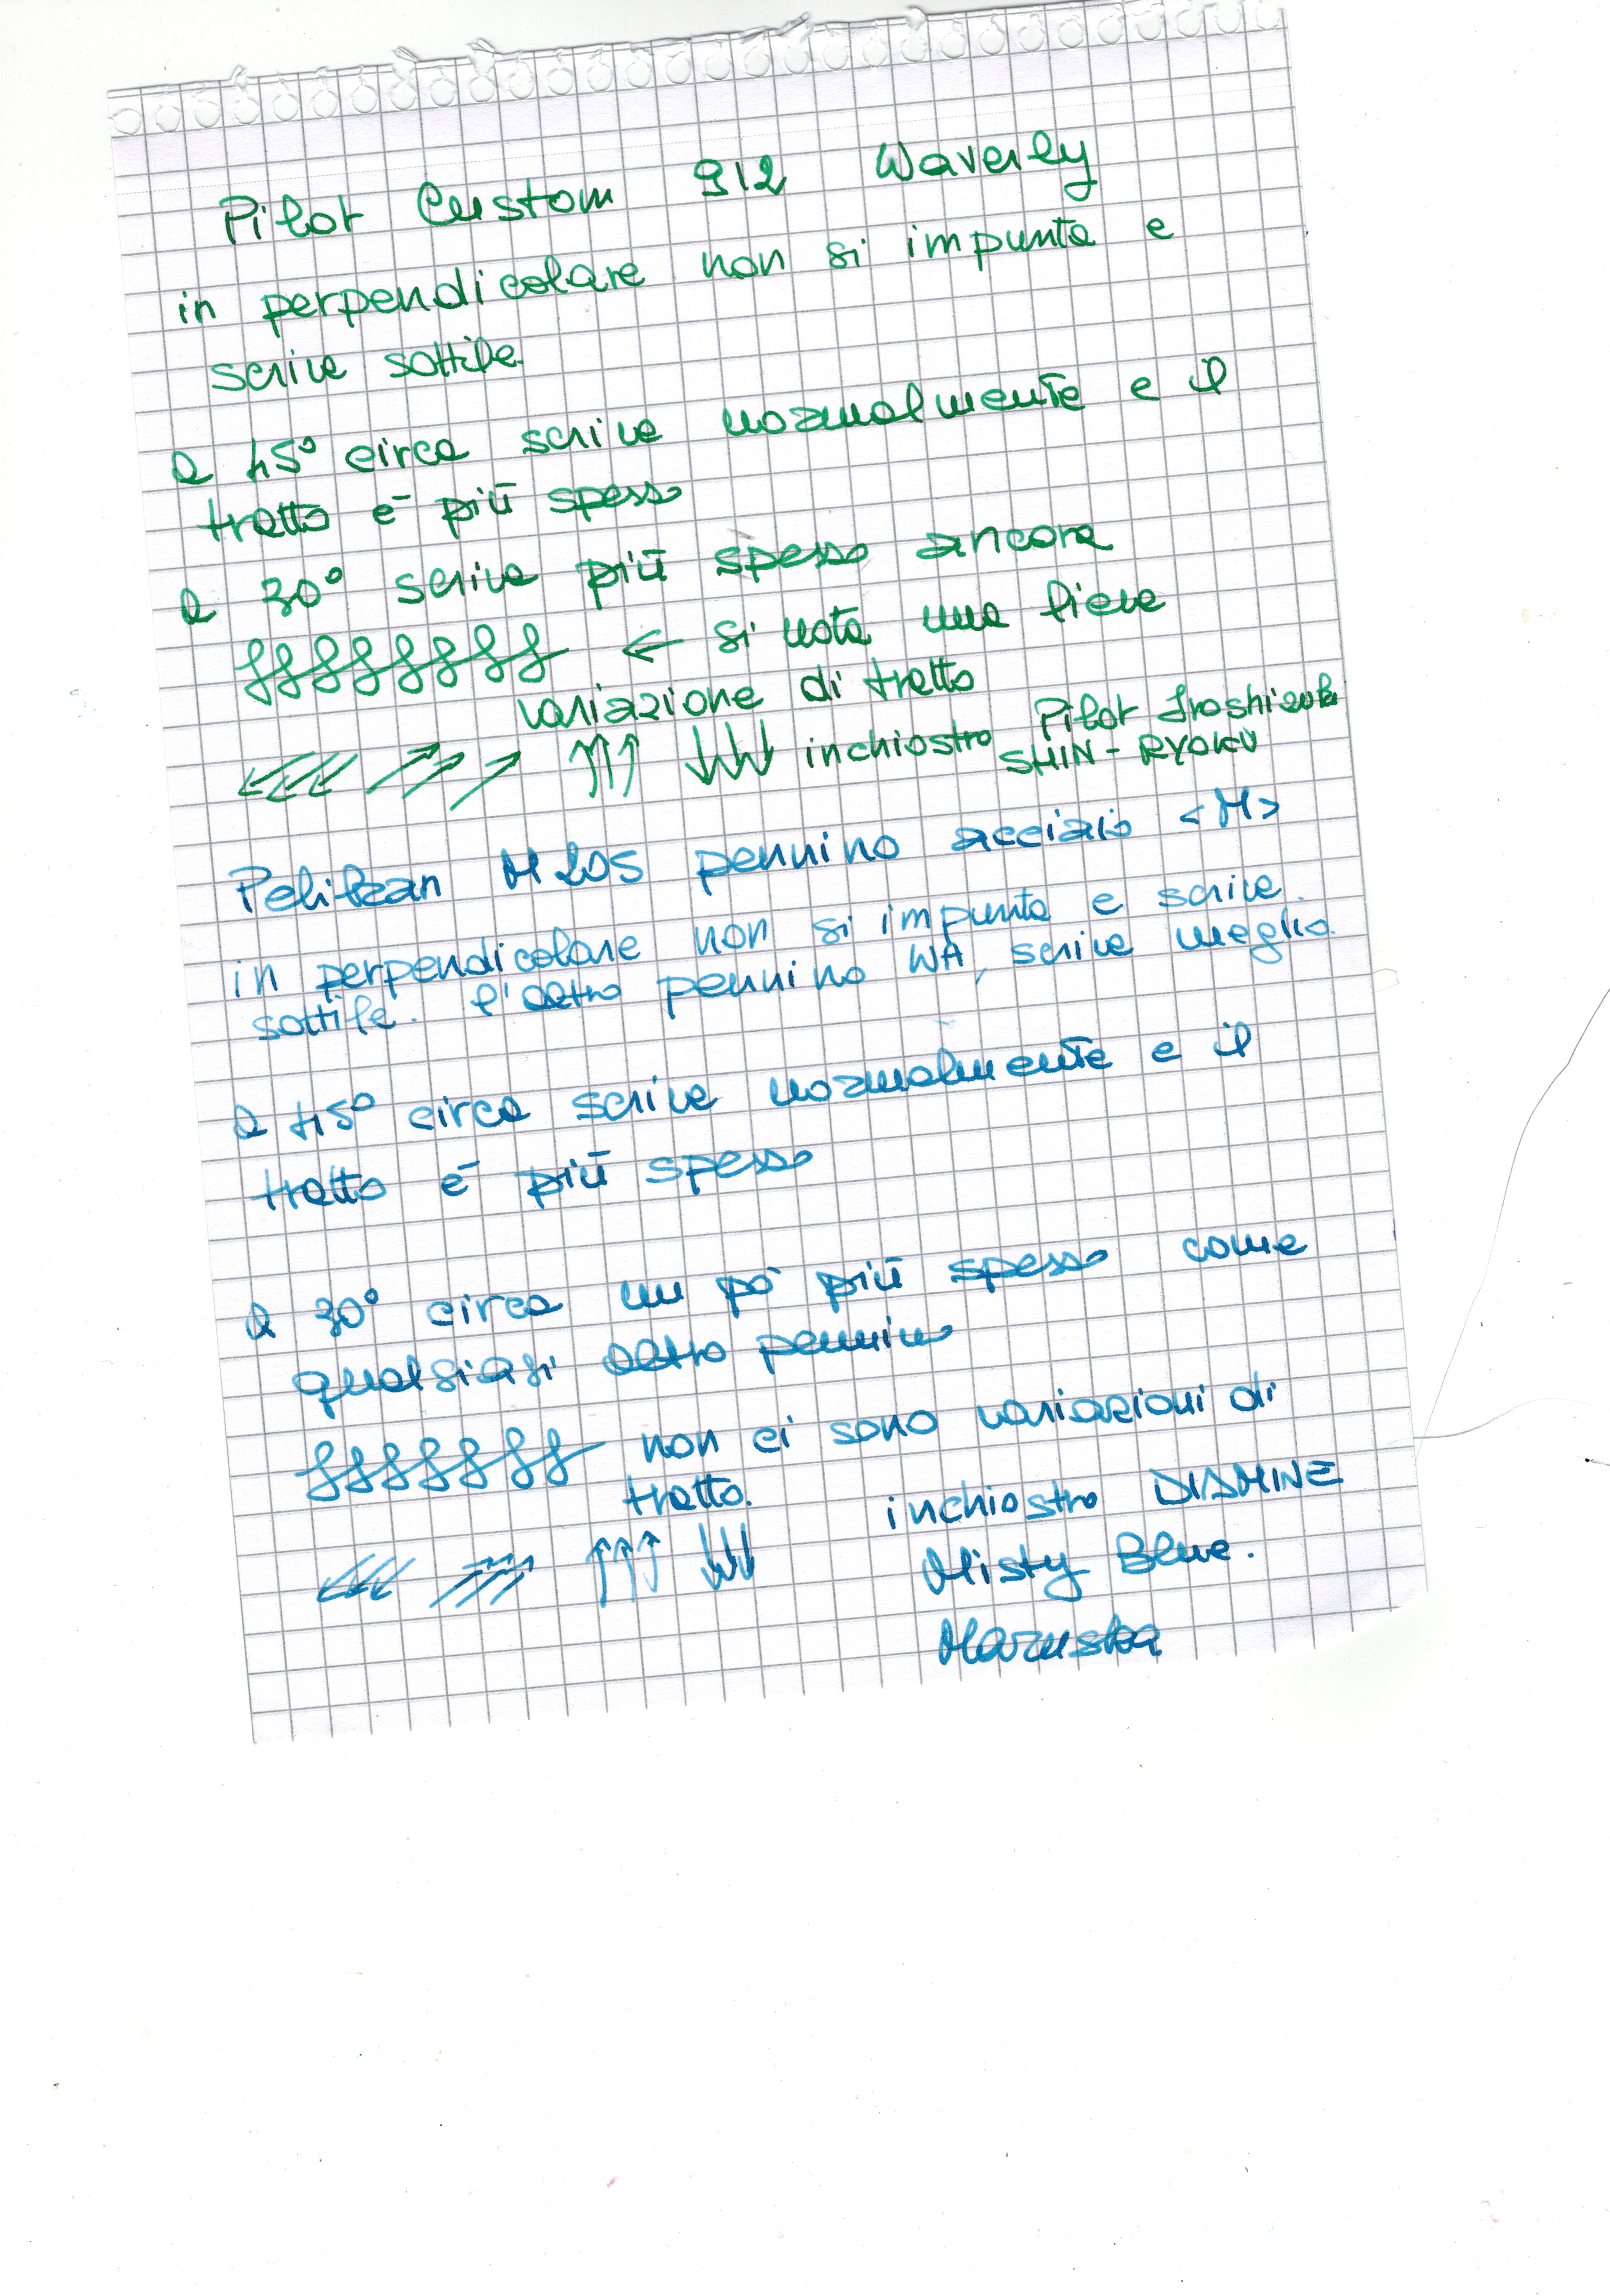 Pilot Custom 912 Waverly
in perpendicolare non si impunta e
scrive sottile.
a 45° circa scrive normalmente e il
tratto è più spesso
a 30° scrive più spesso ancora
← si nota una lieve
variazione di tratto
inchiostro Pilot Iroshizuku
SHIN-RYOKU
Pelikan M205 pennino acciaio <M>
in perpendicolare non si impunta e scrive
sottile. l'altro pennino WA, scrive meglio.
a 45° circa scrive normalmente e il
tratto è più spesso
a 30° circa un pò più spesso come
qualsiasi altro pennino
non ci sono variazioni di
tratto.
inchiostro DIAMINE
Misty Blue.
Maruska